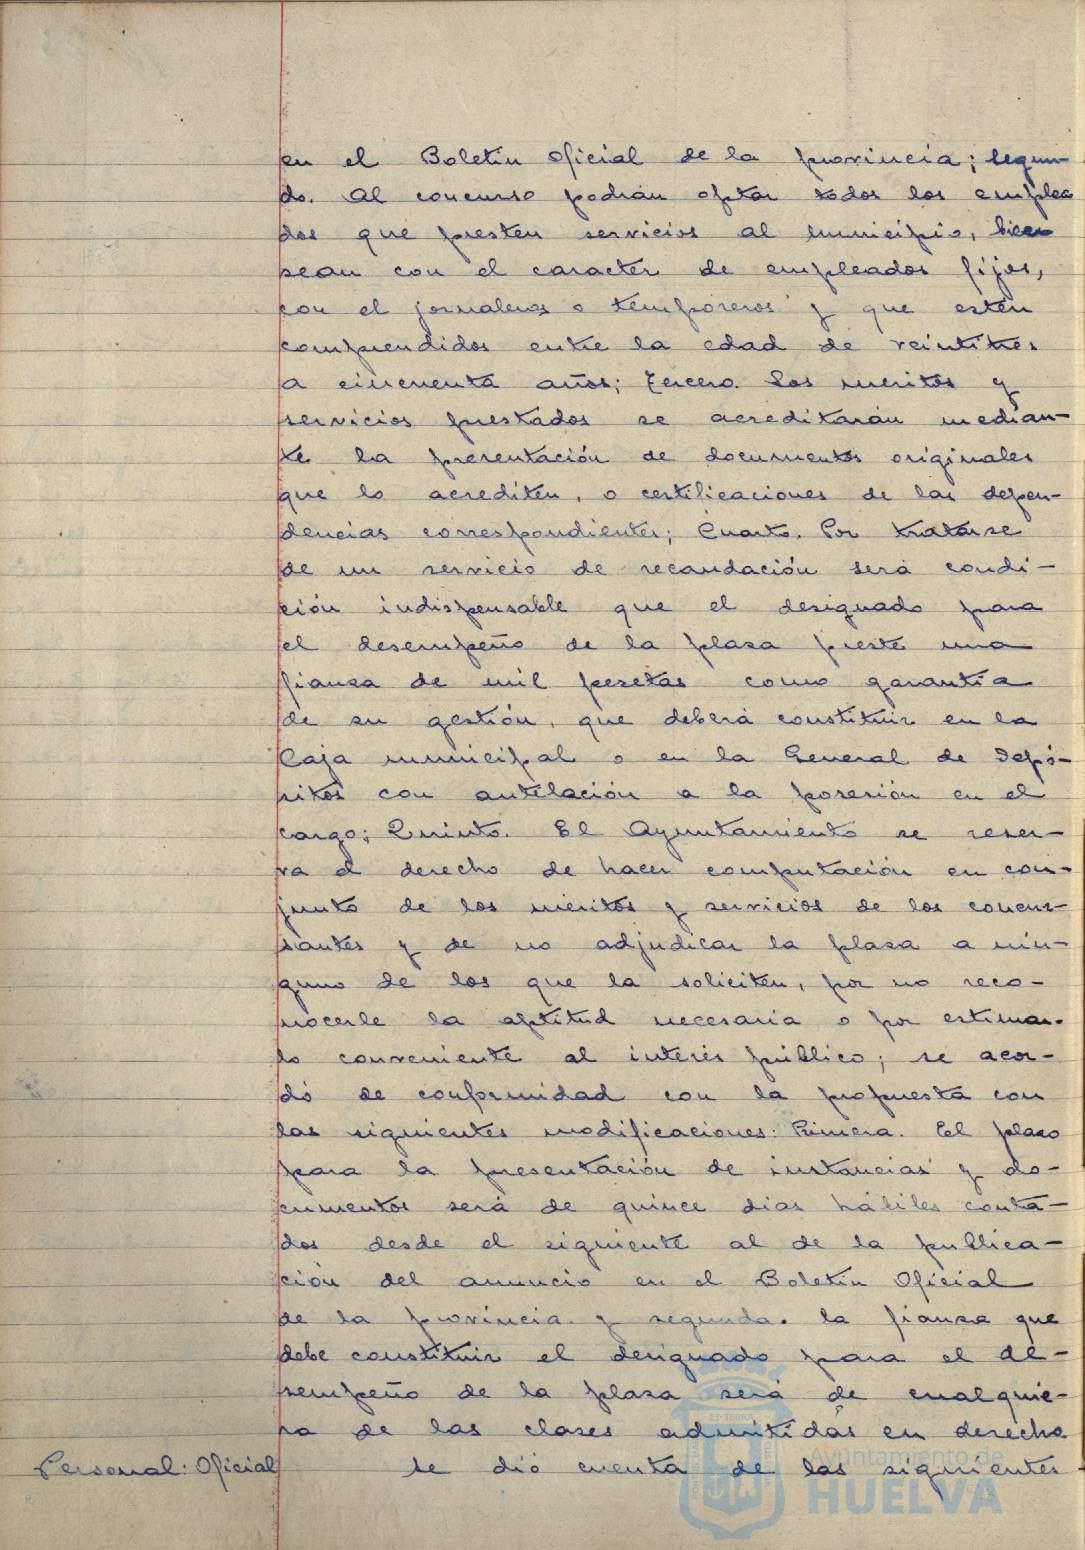 en el Boletín Oficial de la provincia; Segun-
do. Al concurso podrán optar todos los emplea
dos que presten servicios al municipio, bien
sean con el caracter de empleados fijos,
con el jornaleros o temporeros y que estén
comprendidos entre la edad de veintitres
a cincuenta años; Tercero. Los meritos y
servicios prestados se acreditarán median-
te la presentación de documentos originales
que lo acrediten, o certificaciones de las depen-
dencias correspondientes; Cuarto. Por tratarse
de un servicio de recaudación será condi-
ción indispensable que el designado para
el desempeño de la plaza preste una
fianza de mil pesetas como garantía
de su gestión, que deberá constituir en la
Caja municipal o en la General de Depó-
sitos con antelación a la posesión en el
cargo; Quinto. El Ayuntamiento se reser-
va el derecho de hacer computación en con-
junto de los méritos y servicios de los concur-
santes y de no adjudicar la plaza a nin-
guno de los que la soliciten, por no reco-
nocerle la aptitud necesaria o por estimar-
lo conveniente al interés público; se acor-
dó de conformidad con la propuesta con
las siguientes modificaciones: Primera. El plazo
para la presentación de instancias y do-
cumentos será de quince dias hábiles conta-
dos desde el siguiente al de la publica-
ción del anuncio en el Boletín Oficial
de la provincia y segunda. la fianza que
debe constituir el designado para el de-
sempeño de la plaza será de cualquie-
ra de las clases admitidas en derecho
Personal: Oficial Se dió cuenta de las siguientes
Ayuntamiento de
HUELVA